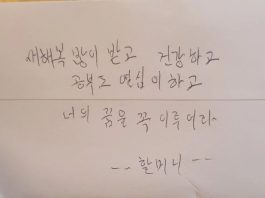 새해복 많이 받고 건강하고
공부도 열심이하고
너의 꿈을 꼭 이루어라~
-- 할머니 --